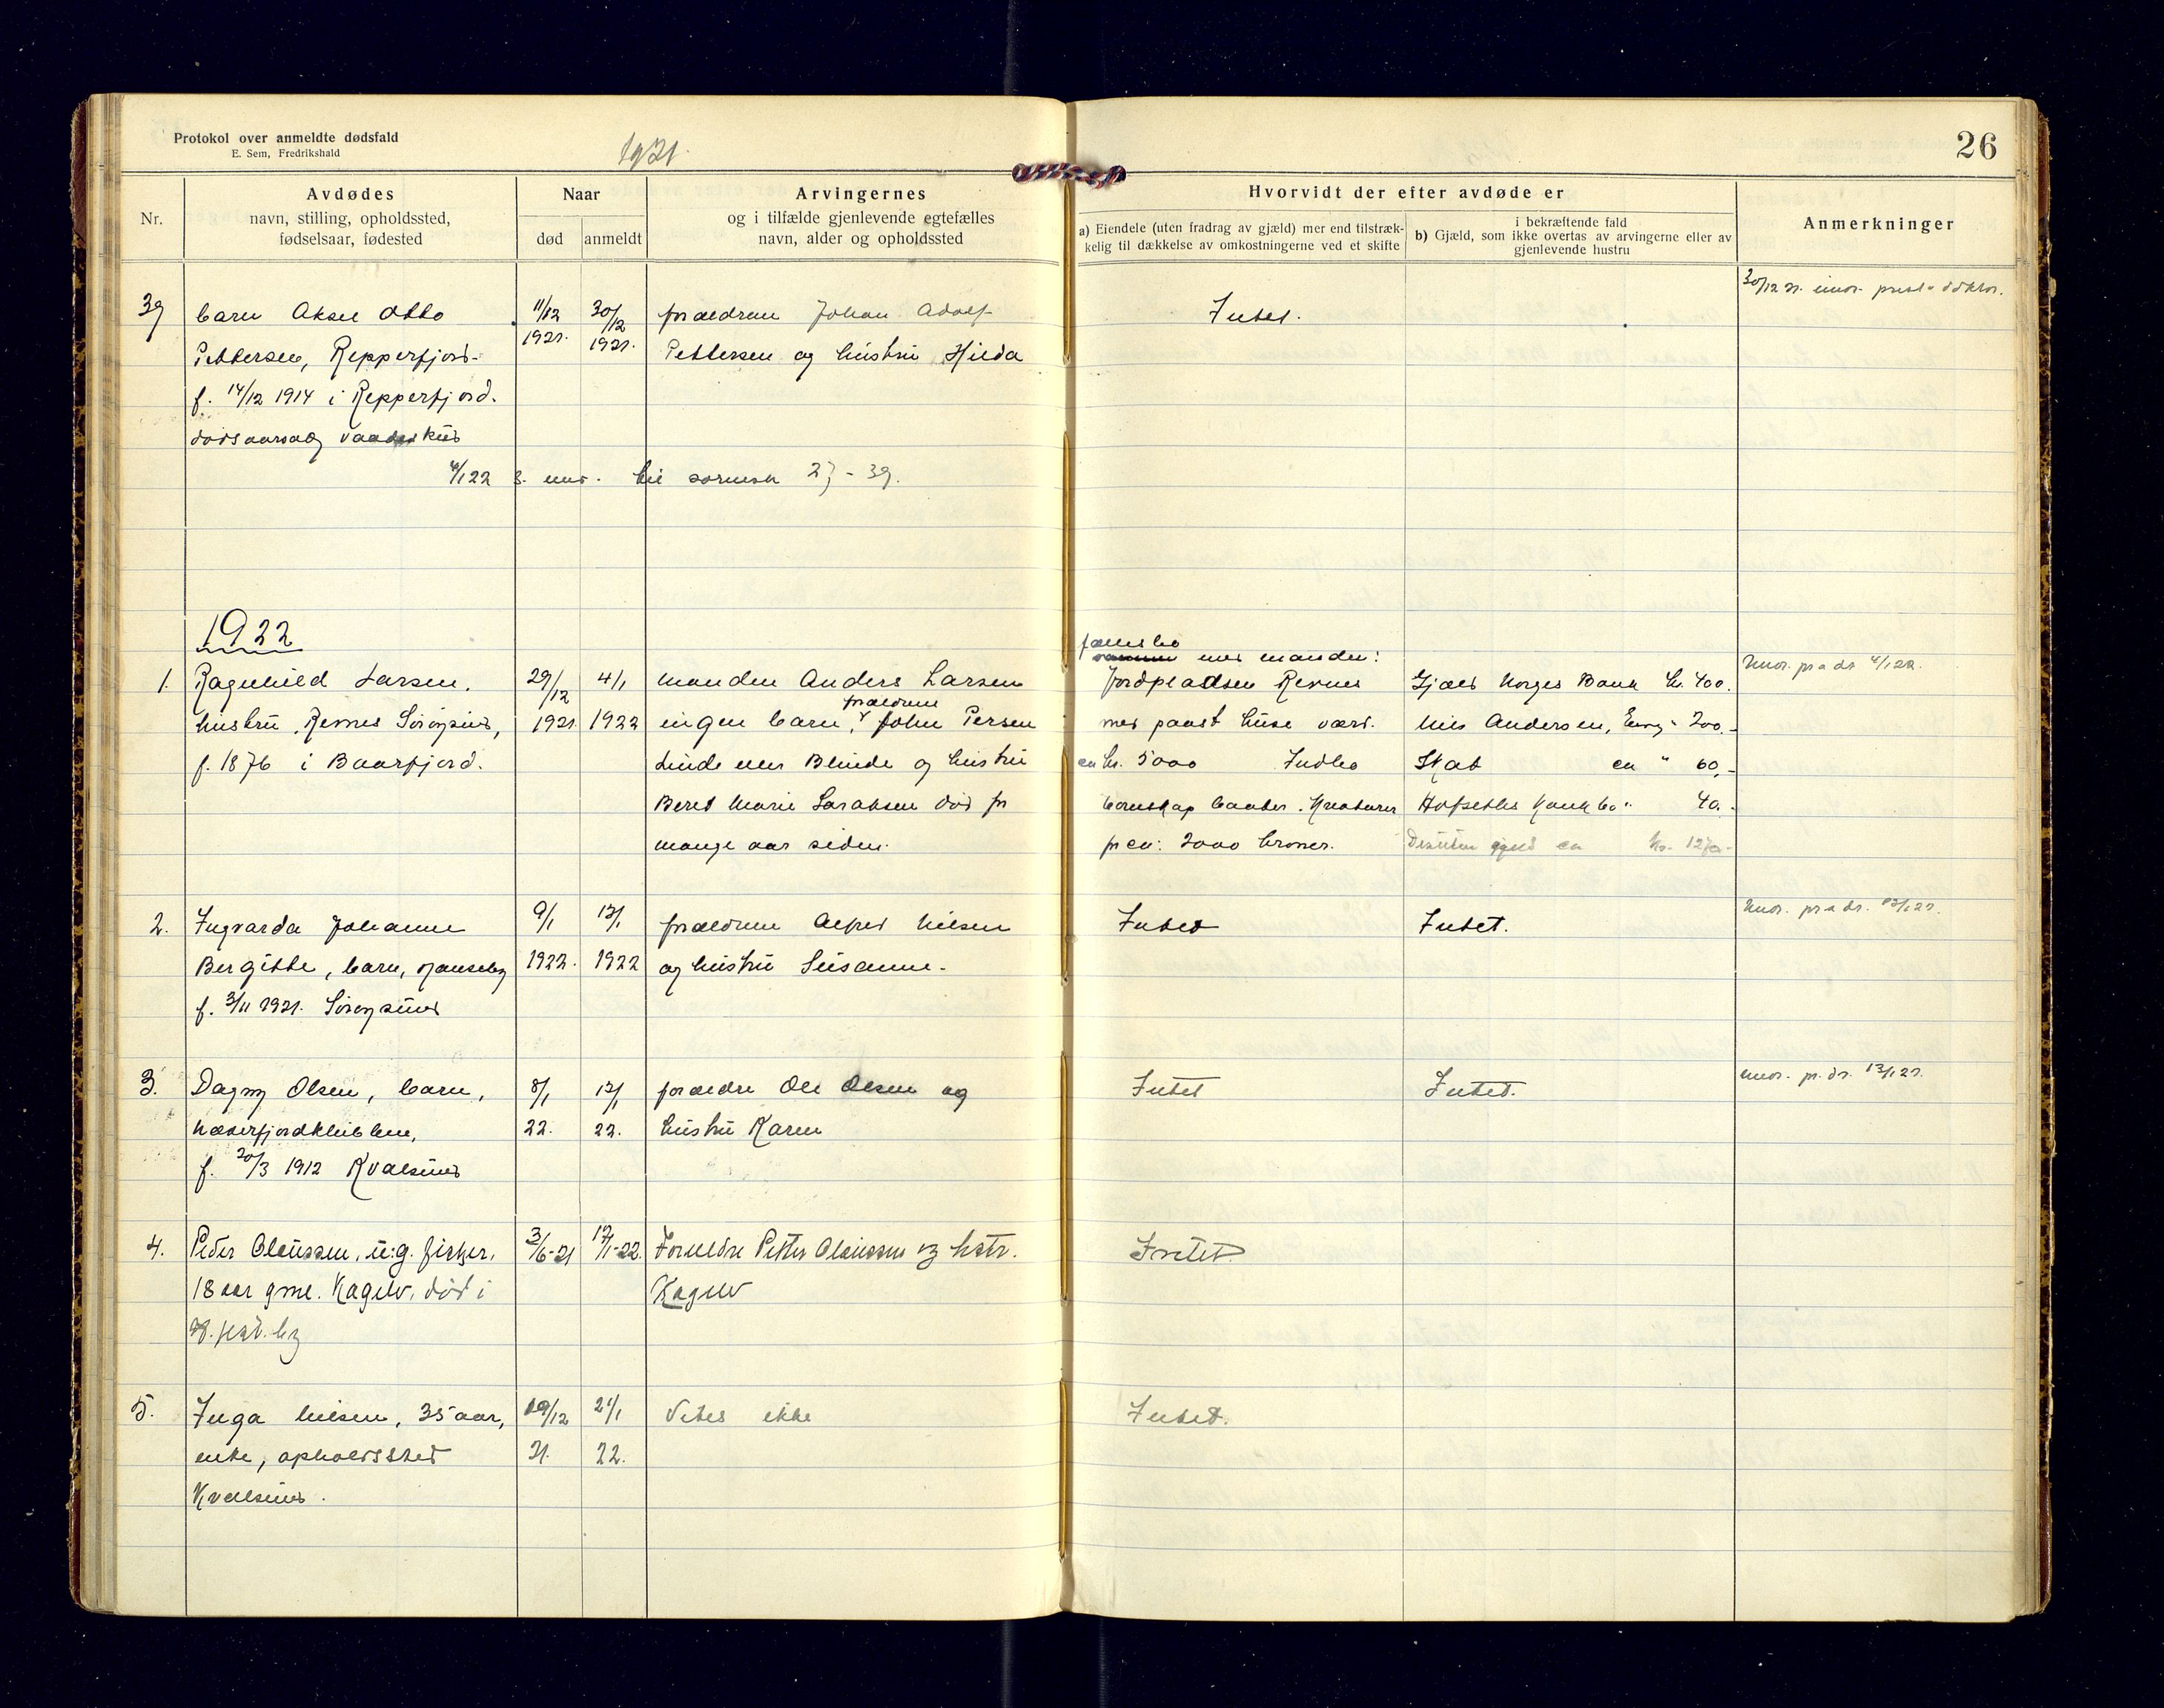 Protokol over anmeldte dødsfald
E. Sem, Fredrikshald
1921.
26
Nr.
Avdødes
navn, stilling, opholdssted,
fødselsaar, fødested
Naar
død
anmeldt
Arvingernes
og i tilfælde gjenlevende egtefælles
navn, alder og opholdssted
Hvorvidt der efter avdøde er
a) Eiendele (uten fradrag av gjæld) mer end tilstræk-
kelig til dækkelse av omkostningerne ved et skifte
i bekræftende fald
b) Gjæld, som ikke overtas av arvingerne eller av
gjenlevende hustru
Anmerkninger
39
barn Aksel Otto
Pettersen, Repperfjord.
f. 14/12 1914 i Repperfjord.
dødsaarsag vaadeskud
11/12
1921.
30/12
1921.
forældrene Johan Adolf
Pettersen og hustru Hilda
Intet.
30/12 21.
4/1 22
27 - 39.
1922
1.
Ragnhild Larsen,
hustru, Revnes Sørøysund,
f. 1876 i Baarfjord.
29/12
1921
4/1
1922
manden Anders Larsen
ingen barn, forældrene John Persen
Linde eller Blinde og hustru
Beret Marie Larsen død for
mange aar siden.
fællesbo
med manden:
Jordpladsen Revnes
med paast. huse værd.
ca kr. 5000 Indbo
boruskap baater. Kreaturer
for ca: 2000 kroner.
Gjæld Norges Bank kr. 400.
Nils Andersen, " 200.-
Skat ca " 60,-
Hofseths " 40.-
Desuten gjæld ca kr.
4/1 22.
2.
Ingvarda Johanne
Bergitte, barn,
f. 3/11 1921. Sørøysund
9/1
1922.
13/1
1922
forældrene Alfred Nilsen
og hustru Susanne.
Intet
Intet.
13/1 22.
3.
Dagny Olsen, barn,
f. 20/3 1912 Kvalsund
8/1
22.
13/1
22.
forældre Ole Olsen og
hustru Karen
Intet
Intet.
13/1 22.
4.
Peder Olaussen, u.g. fisker,
18 aar gml. Kagelv, død i
3/6-21
17/1-22.
Forældre Petter Olaussen og hstr.
Kagelv
Intet.
5.
Inga Nilsen, 35 aar,
enke, opholdssted
Kvalsund.
29/12
21.
21/1
22.
Vites ikke
Intet.